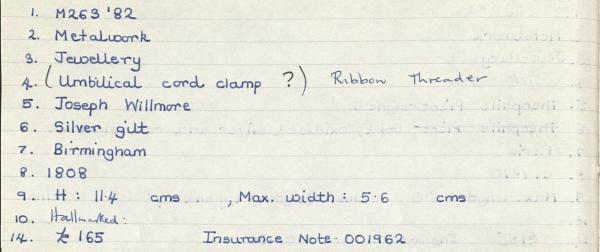 1. M263 '82
2. Metalwork
3. Jewellery
4. (Umbilical cord clamp ?) Ribbon Threader
5. Joseph Willmore
6. Silver gilt
7. Birmingham
8. 1808
9. H : 11.4 cms , Max. width : 5.6 cms
10. Hallmarked:
14. £ 165 Insurance Note: 001962